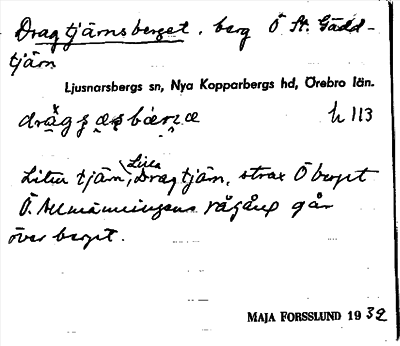 Dragtjärnsberget, berg Ö St. Gädd-
tjärn
Ljusnarsbergs sn, Nya Kopparbergs hd, Örebro län.
h 113
Liten tjärn, Lilla Dragtjärn, strax Ö berget
Ö. Allmänningens rågång går
över berget.
MAJA FORSSLUND 1932